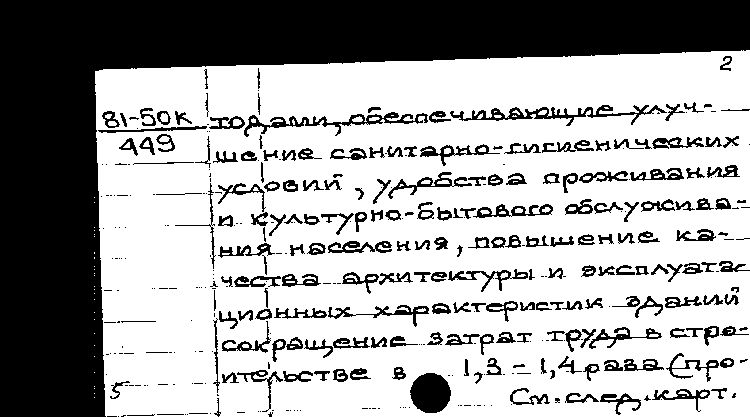 2
81-50к
449
тодами, обеспечивающие улуч-
шение санитарно-гигиенических
условий, удобства проживания
и культурно-бытового обслужива-
ния населения, повышение ка-
чества архитектуры и эксплуата-
ционных характеристик зданий
сокращение затрат труда в стро-
ительстве в 1,3-1,4 раза (про-
5
См. след. карт.